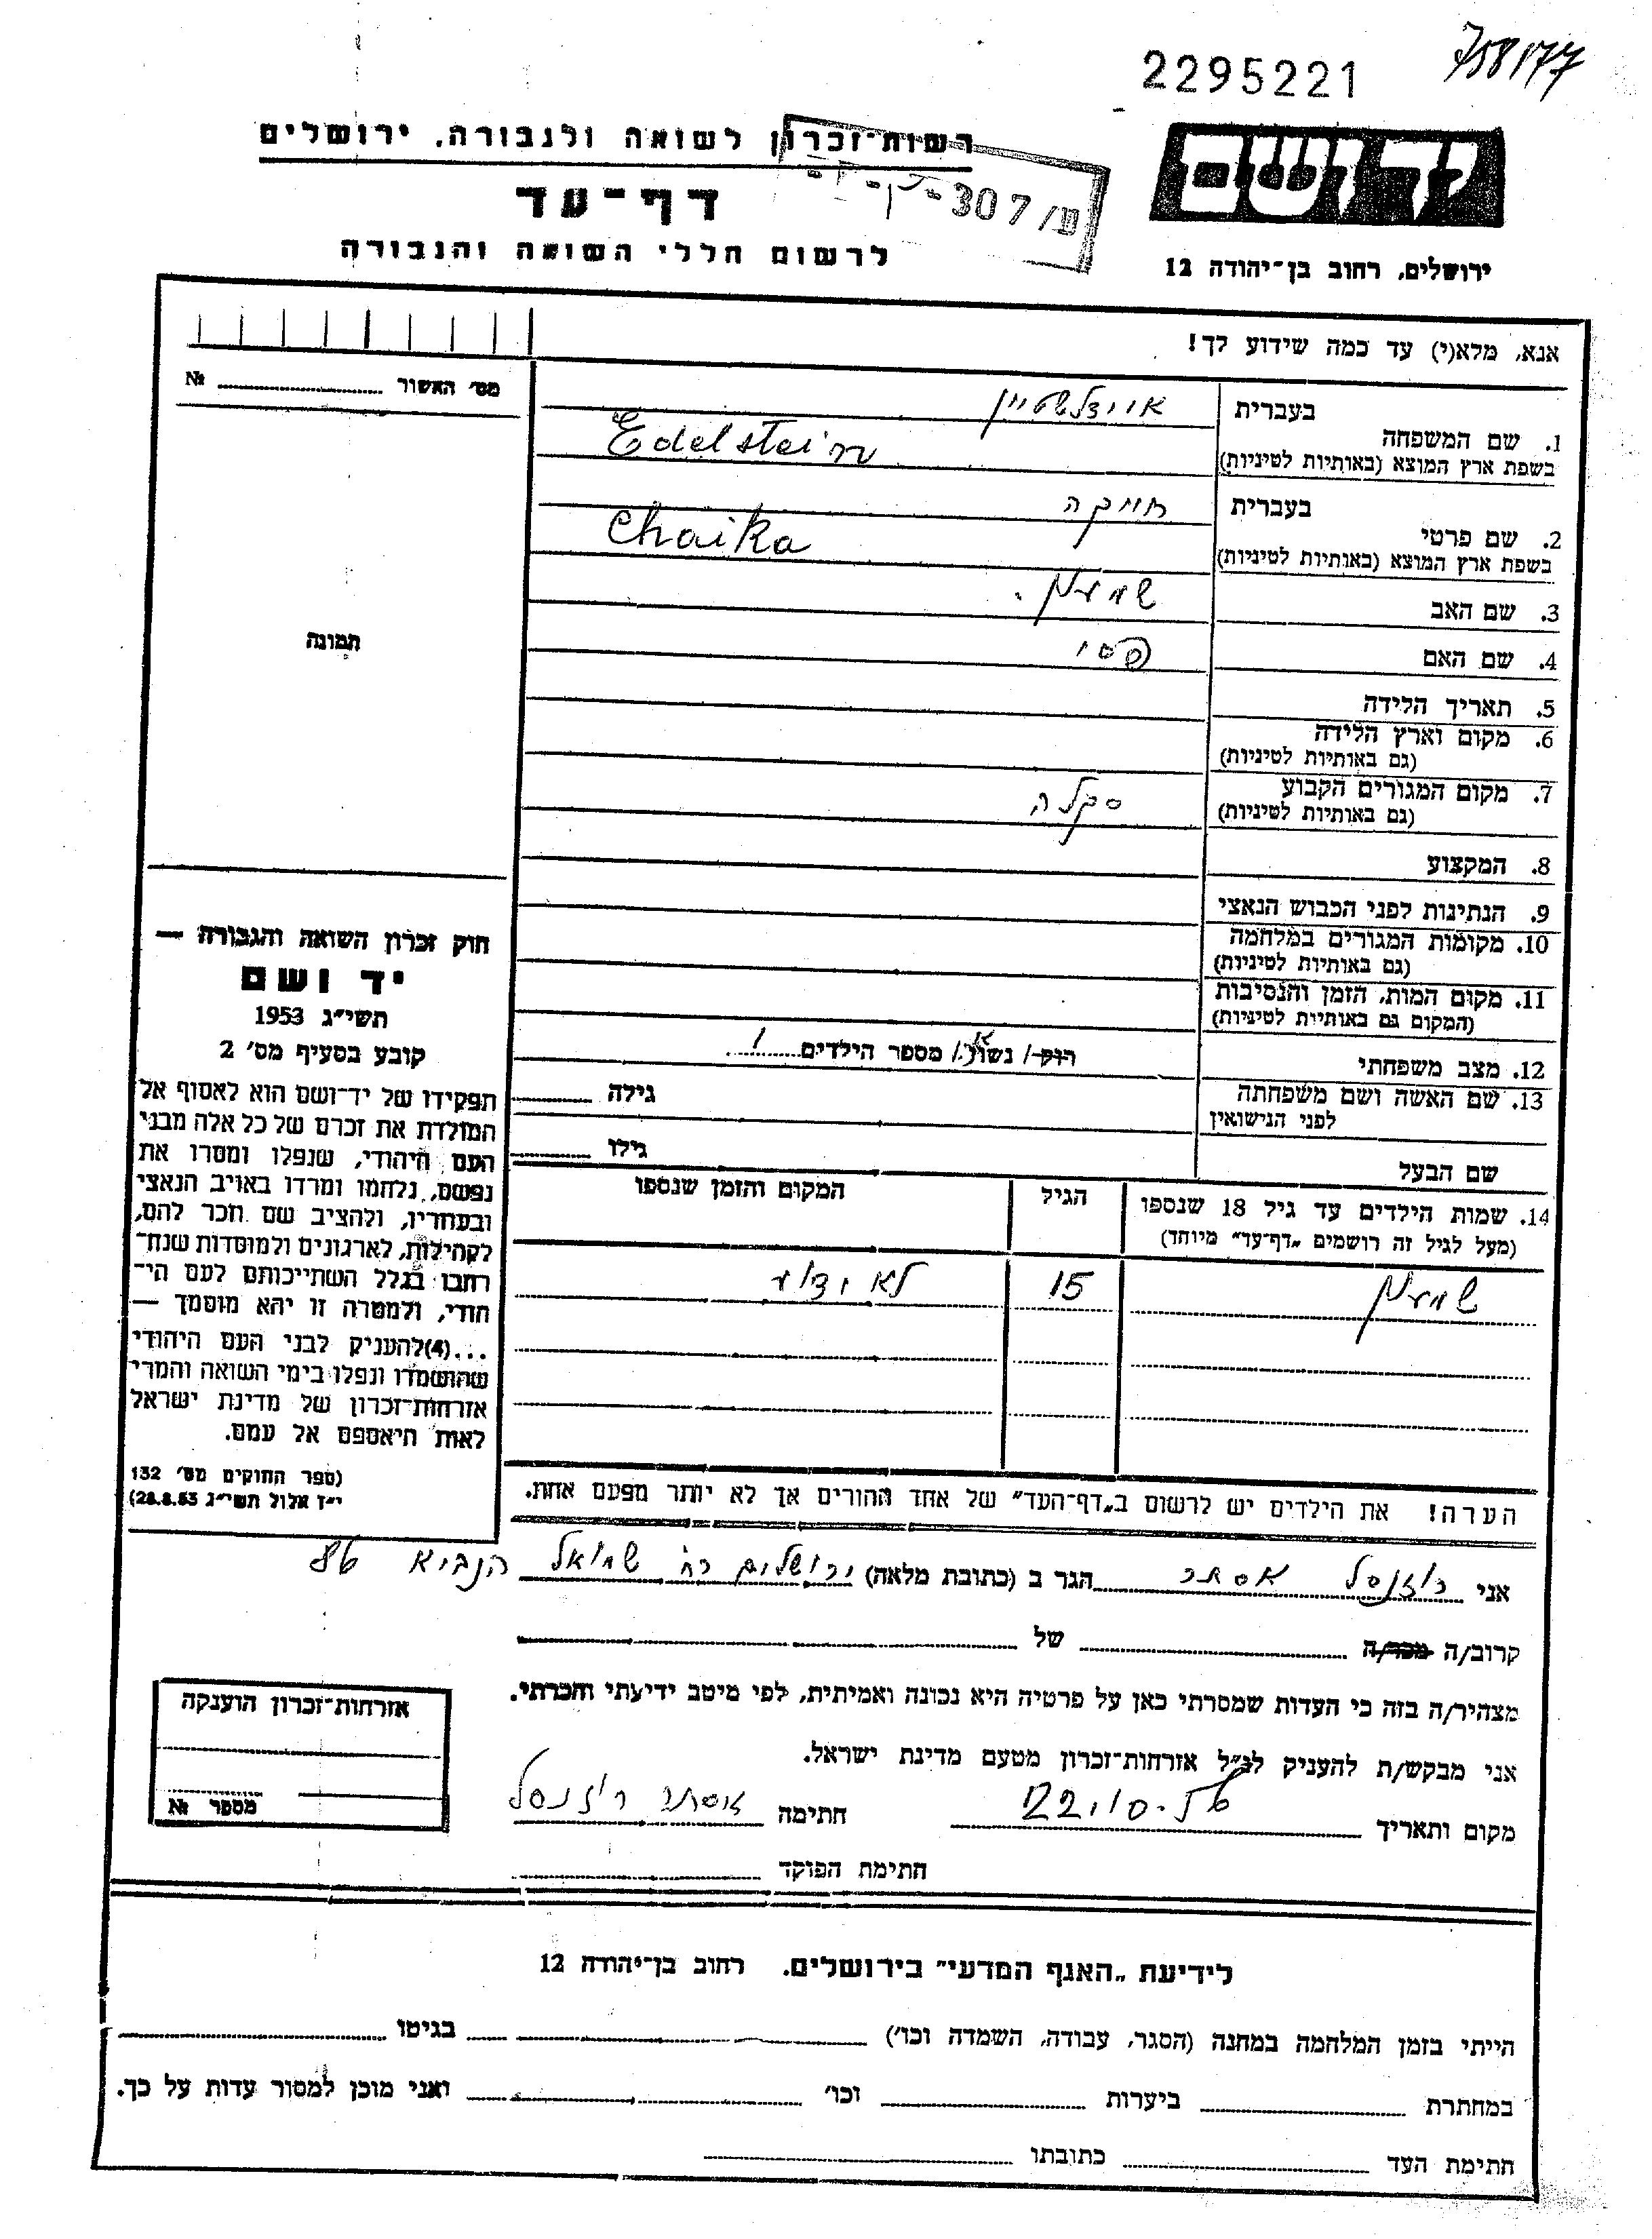 2295221
758177
יד ושם
ירושלים, רחוב בן־יהודה 12
רשות־זכרון לשואה ולגבורה, ירושלים
דף־עד
לרשום חללי השואה והגבורה
ע/307
אנא, מלא(י) עד כמה שידוע לך!
מס׳ האשור № 
1. שם המשפחה
בעברית איידלשטיין
בשפת ארץ המוצא (באותיות לטיניות) Edelstein
2. שם פרטי
בעברית חייקה
בשפת ארץ המוצא (באותיות לטיניות) Chaika
3. שם האב שמעון
4. שם האם פסי
5. תאריך הלידה
6. מקום וארץ הלידה
(גם באותיות לטיניות)
7. מקום המגורים הקבוע סקלה
(גם באותיות לטיניות)
8. המקצוע
9. הנתינות לפני הכבוש הנאצי
10. מקומות המגורים במלחמה
(גם באותיות לטיניות)
11. מקום המות, הזמן והנסיבות
(המקום גם באותיות לטיניות)
12. מצב משפחתי רווק/ נשוי/א מספר הילדים 1
13. שם האשה ושם משפחתה גילה
לפני הנישואין
שם הבעל גילו
14. שמות הילדים עד גיל 18 שנספו הגיל המקום והזמן שנספו
(מעל לגיל זה רושמים „דף־עד״ מיוחד)
שמעון 15 לא ידוע
הערה! את הילדים יש לרשום ב„דף־העד״ של אחד ההורים אך לא יותר מפעם אחת.
תמונה
חוק זכרון השואה והגבורה —
יד ושם
תשי״ג 1953
קובע בסעיף מס׳ 2
תפקידו של יד־ושם הוא לאסוף אל
המולדת את זכרם של כל אלה מבני
העם היהודי, שנפלו ומסרו את
נפשם, נלחמו ומרדו באויב הנאצי
ובעוזריו, ולהציב שם וזכר להם,
לקהילות, לארגונים ולמוסדות שנח־
רבו בגלל השתייכותם לעם הי־
הודי, ולמטרה זו יהא מוסמך —
...(4)להעניק לבני העם היהודי
שהושמדו ונפלו בימי השואה והמרי
אזרחות־זכרון של מדינת ישראל
לאות היאספם אל עמם.
(ספר החוקים מס׳ 132
י״ז אלול תשי״ג 28.8.53)
אני רוזנסל אסתר הגר ב (כתובת מלאה) ירושלים רח׳ שמואל הנביא 86
קרוב/ה מכר/ה של
מצהיר/ה בזה כי העדות שמסרתי כאן על פרטיה היא נכונה ואמיתית, לפי מיטב ידיעתי והכרתי.
אני מבקש/ת להעניק לנ״ל אזרחות־זכרון מטעם מדינת ישראל.
מקום ותאריך חתימה אסתר רוזנסל
חתימת הפוקד
אזרחות־זכרון הוענקה
מספר №
לידיעת „האגף המדעי״ בירושלים. רחוב בן־יהודה 12
הייתי בזמן המלחמה במחנה (הסגר, עבודה, השמדה וכו׳) בגיטו
במחתרת ביערות וכו׳ ואני מוכן למסור עדות על כך.
חתימת העד כתובתו